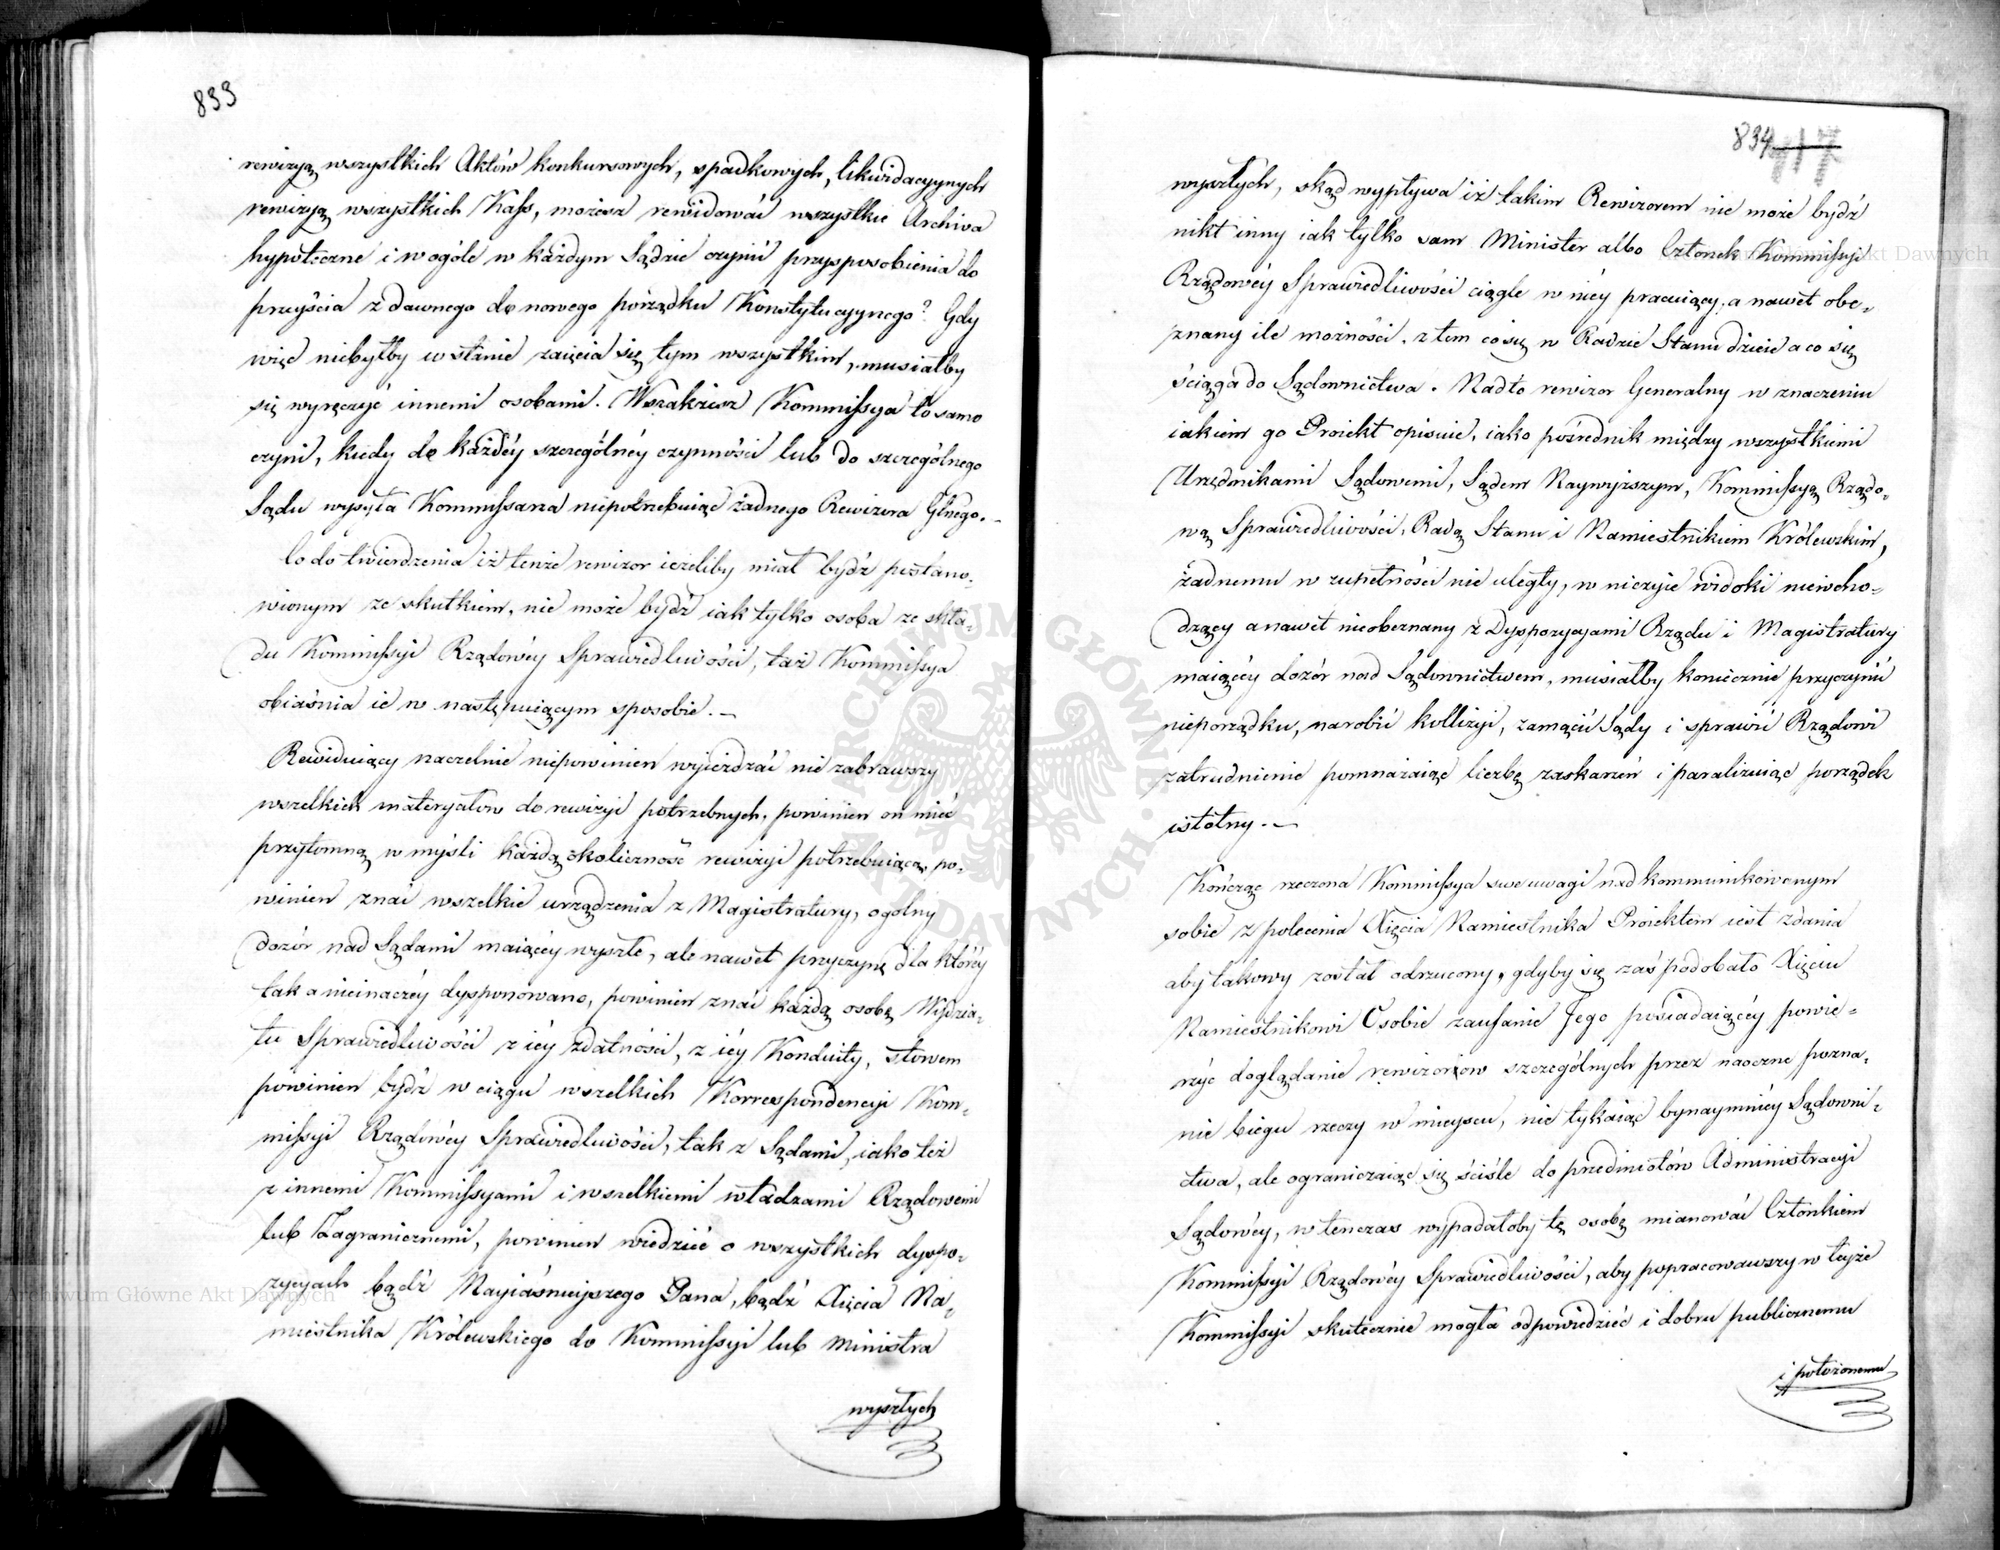 833
rewizyą wszystkich Aktów konkursowych, spadkowych, likwidacyynych
rewizyą wszystkich Kass, możesz rewidować wszystkie Archiwa
hypoteczne i w ogóle w każdym Sądzie czynić przysposobienia do
przeyścia z dawnego do nowego porządku Konstytucyynego? Gdy
więc niebyłby w stanie zaięcia się tym wszystkim, musiałby
się wyręczyć innemi osobami. Wszakżesz Kommissya to samo
czyni, kiedy do każdéy szczególnéy czynności lub do szczególnego
Sądu wysyła Kommissarza niepotrzebuiąc żadnego Rewizora Głnego. –
Co do twierdzenia iż tenże rewizor ieżeliby miał bydź postano-
wionym ze skutkiem, nie może bydź iak tylko osoba ze skła-
du Kommissyi Rządowéy Sprawiedliwości, taż Kommissya
obiaśnia ie w następuiącym sposobie. –
Rewiduiący naczelnie niepowinien wyieżdżać nie zabrawszy
wszelkich materyałów do rewizyi potrzebnych, powinien on mieć
przytomną w myśli każdą okoliczność rewizyi potrzebuiącą, po-
winien znać wszelkie urządzenia z Magistratury, ogólny
dozór nad Sądami maiącéy wyszłe, ale nawet przyczynę dla któréy
tak a nieinaczéy dysponowano, powinien znać każdą osobę Wydzia-
łu Sprawiedliwości z iéy zdatności, z iéy Konduity, słowem
powinien bydź w ciągu wszelkich Korrespondencyi Kom-
missyi Rządowéy Sprawiedliwości, tak z Sądami, iako też
z innemi Kommissyami i wszelkiemi władzami Rządowemi
lub Zagranicznemi, powinien wiedzieć o wszystkich dyspo-
zycyach bądź Nayiaśnieyszego Pana, bądź Xięcia Na-
miestnika Królewskiego do Kommissyi lub Ministra
wyszłych
834
417
wyszłych, skąd wypływa iż takim Rewizorem nie może bydź
nikt inny iak tylko sam Minister albo Członek Kommissyi
Rządowéy Sprawiedliwości ciągle w niéy pracuiący, a nawet obe-
znany ile możności, z tem co się w Radzie Stanu dzieie a co się
ściąga do Sądownictwa. Nadto rewizor Generalny w znaczeniu
iakiem go Proiekt opisuie, iako pośrednik między wszystkiemi
Urzędnikami Sądowemi, Sądem Naywyższym, Kommissyą Rządo-
wą Sprawiedliwości, Radą Stanu i Namiestnikiem Królewskim,
żadnemu w zupełności nie uległy, w niczyie widoki niewcho-
dzący a nawet nieobeznany z Dyspozycyami Rządu i Magistratury
maiącéy dozór nad Sądownictwem, musiałby koniecznie przyczynić
nieporządku, narobić kollizyi, zamącić Sądy i sprawić Rządowi
zatrudnienie pomnażaiąc liczbę zaskarżeń i paraliżuiąc porządek
istotny. –
Kończąc rzeczona Kommissya swe uwagi nad kommunikowanym
sobie z polecenia Xięcia Namiestnika Proiektem iest zdania
aby takowy został odrzucony, gdyby się zaś podobało Xięciu
Namiestnikowi Osobie zaufanie Jego posiadaiącéy powie-
rzyć doglądanie rewizorów szczególnych przez naoczne pozna-
nie biegu rzeczy w mieyscu, nie tykaiąc bynaymniéy Sądowni-
ctwa, ale ograniczaiąc się ściśle do przedmiotów Administracyi
Sądowéy, w tenczas wypadałoby tę osobę mianować Członkiem
Kommissyi Rządowéy Sprawiedliwości, aby popracowawszy w teyże
Kommissyi skutecznie mogła odpowiedzieć i dobru publicznemu
i położonemu
ARCHIWUM GŁÓWNE AKT DAWNYCH
Archiwum Główne Akt Dawnych